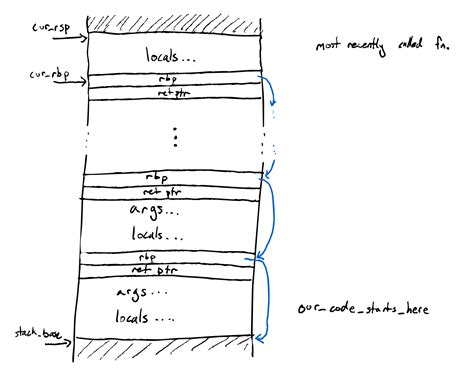 cur_rsp
most recently called fn.
locals...
cur_rbp
rbp
ret ptr
rbp
ret ptr
args...
locals...
rbp
ret ptr
args...
our_code_starts_here
locals....
stack_base